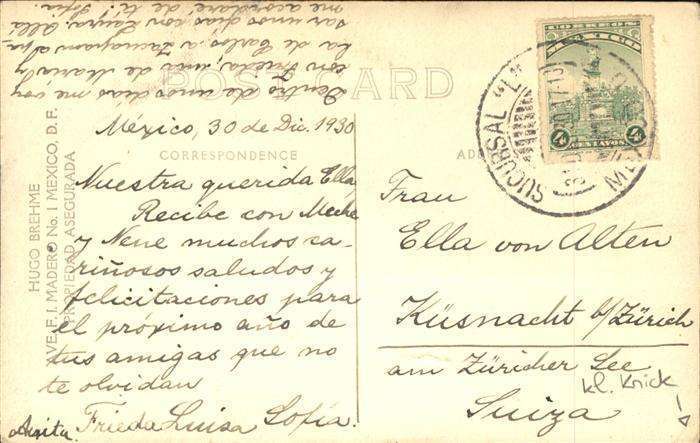 POST CARD
CORRESPONDENCE
México, 30 de Dic. 1930
Nuestra querida Ella
Recibe con Meche
y Nene muchos ca-
riñosos saludos y
felicitaciones para
el próximo año de
tus amigas que no
te olvidan
Anita Frieda Luisa Sofía.
Dentro de unos días me voy
con Frieda, una de María y
de Carlos a
sar unos días con Laura. Allá
me acordaré de ti! Sofía.
HUGO BREHME
AVE. F. I. MADERO No. 1 MEXICO, D. F.
PROPIEDAD ASEGURADA
SUCURSAL "L"
MEXICO
4 CENTAVOS 4
Frau
Ella von Alten
Küsnacht b/Zürich
am Züricher See
Suiza
kl. Knick